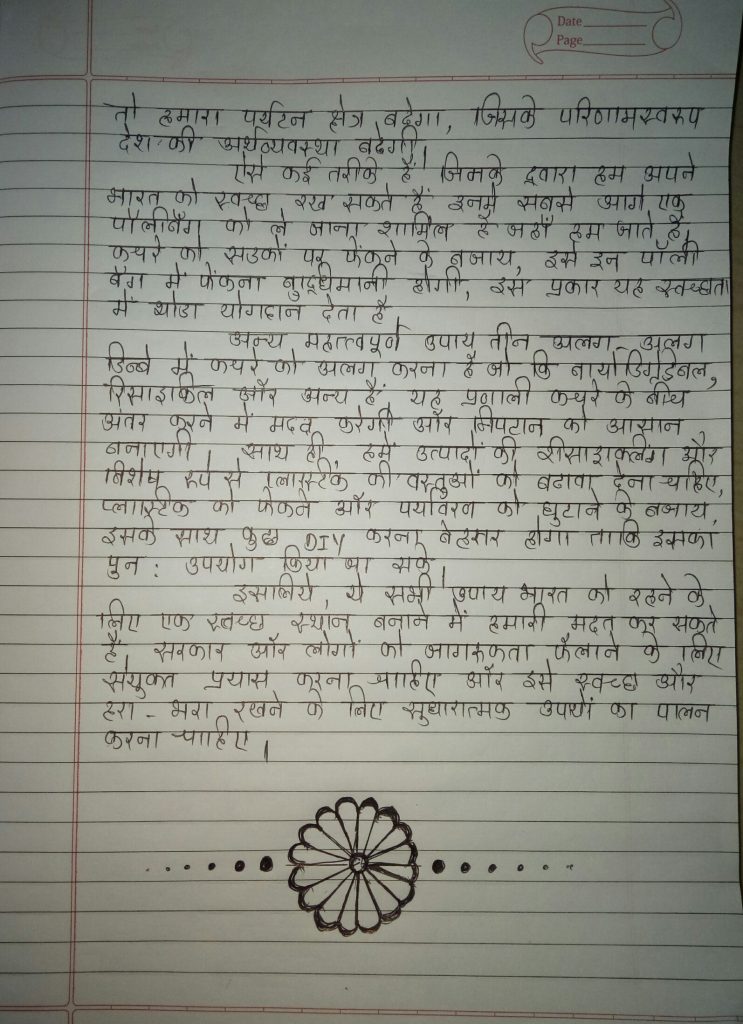 Date
Page
तो हमारा पर्यटन क्षेत्र बढ़ेगा, जिसके परिणामस्वरूप
देश की अर्थव्यवस्था बढेगी।
ऐसे कई तरीके हैं जिनके द्वारा हम अपने
भारत को स्वच्छ रख सकते हैं इनमें सबसे आगे एक
पॉलीबैग को ले जाना शामिल है जहाँ हम जाते हैं,
कचरे को सडकों पर फेंकने के बजाय, इसे इन पॉली
बैग में फेंकना बुद्धिमानी होगी, इस प्रकार यह स्वच्छता
में थोडा योगदान देता है
अन्य महत्त्वपूर्ण उपाय तीन अलग-अलग
डिब्बे में कचरे को अलग करना है जो कि बायोडिग्रेडेबल,
रिसाइकिल और अन्य हैं यह प्रणाली कचरे के बीच
अंतर करने में मदद करेगी और निपटान को आसान
बनाएगी। साथ ही, हमें उत्पादों की रीसाइक्लिंग और
विशेष रूप से प्लास्टिक की वस्तुओं को बढावा देना चाहिए,
प्लास्टिक को फेंकने और पर्यावरण को घुटाने के बजाय,
इसके साथ कुछ DIY करना बेहतर होगा ताकि इसका
पुन: उपयोग किया जा सके।
इसलिये, ये सभी उपाय भारत को रहने के
लिए एक स्वच्छ स्थान बनाने में हमारी मदत कर सकते
हैं सरकार और लोगों को जागरूकता फैलाने के लिए
संयुक्त प्रयास करना चाहिए और इसे स्वच्छ और
हरा-भरा रखने के लिए सुधारात्मक उपायों का पालन
करना चाहिए।